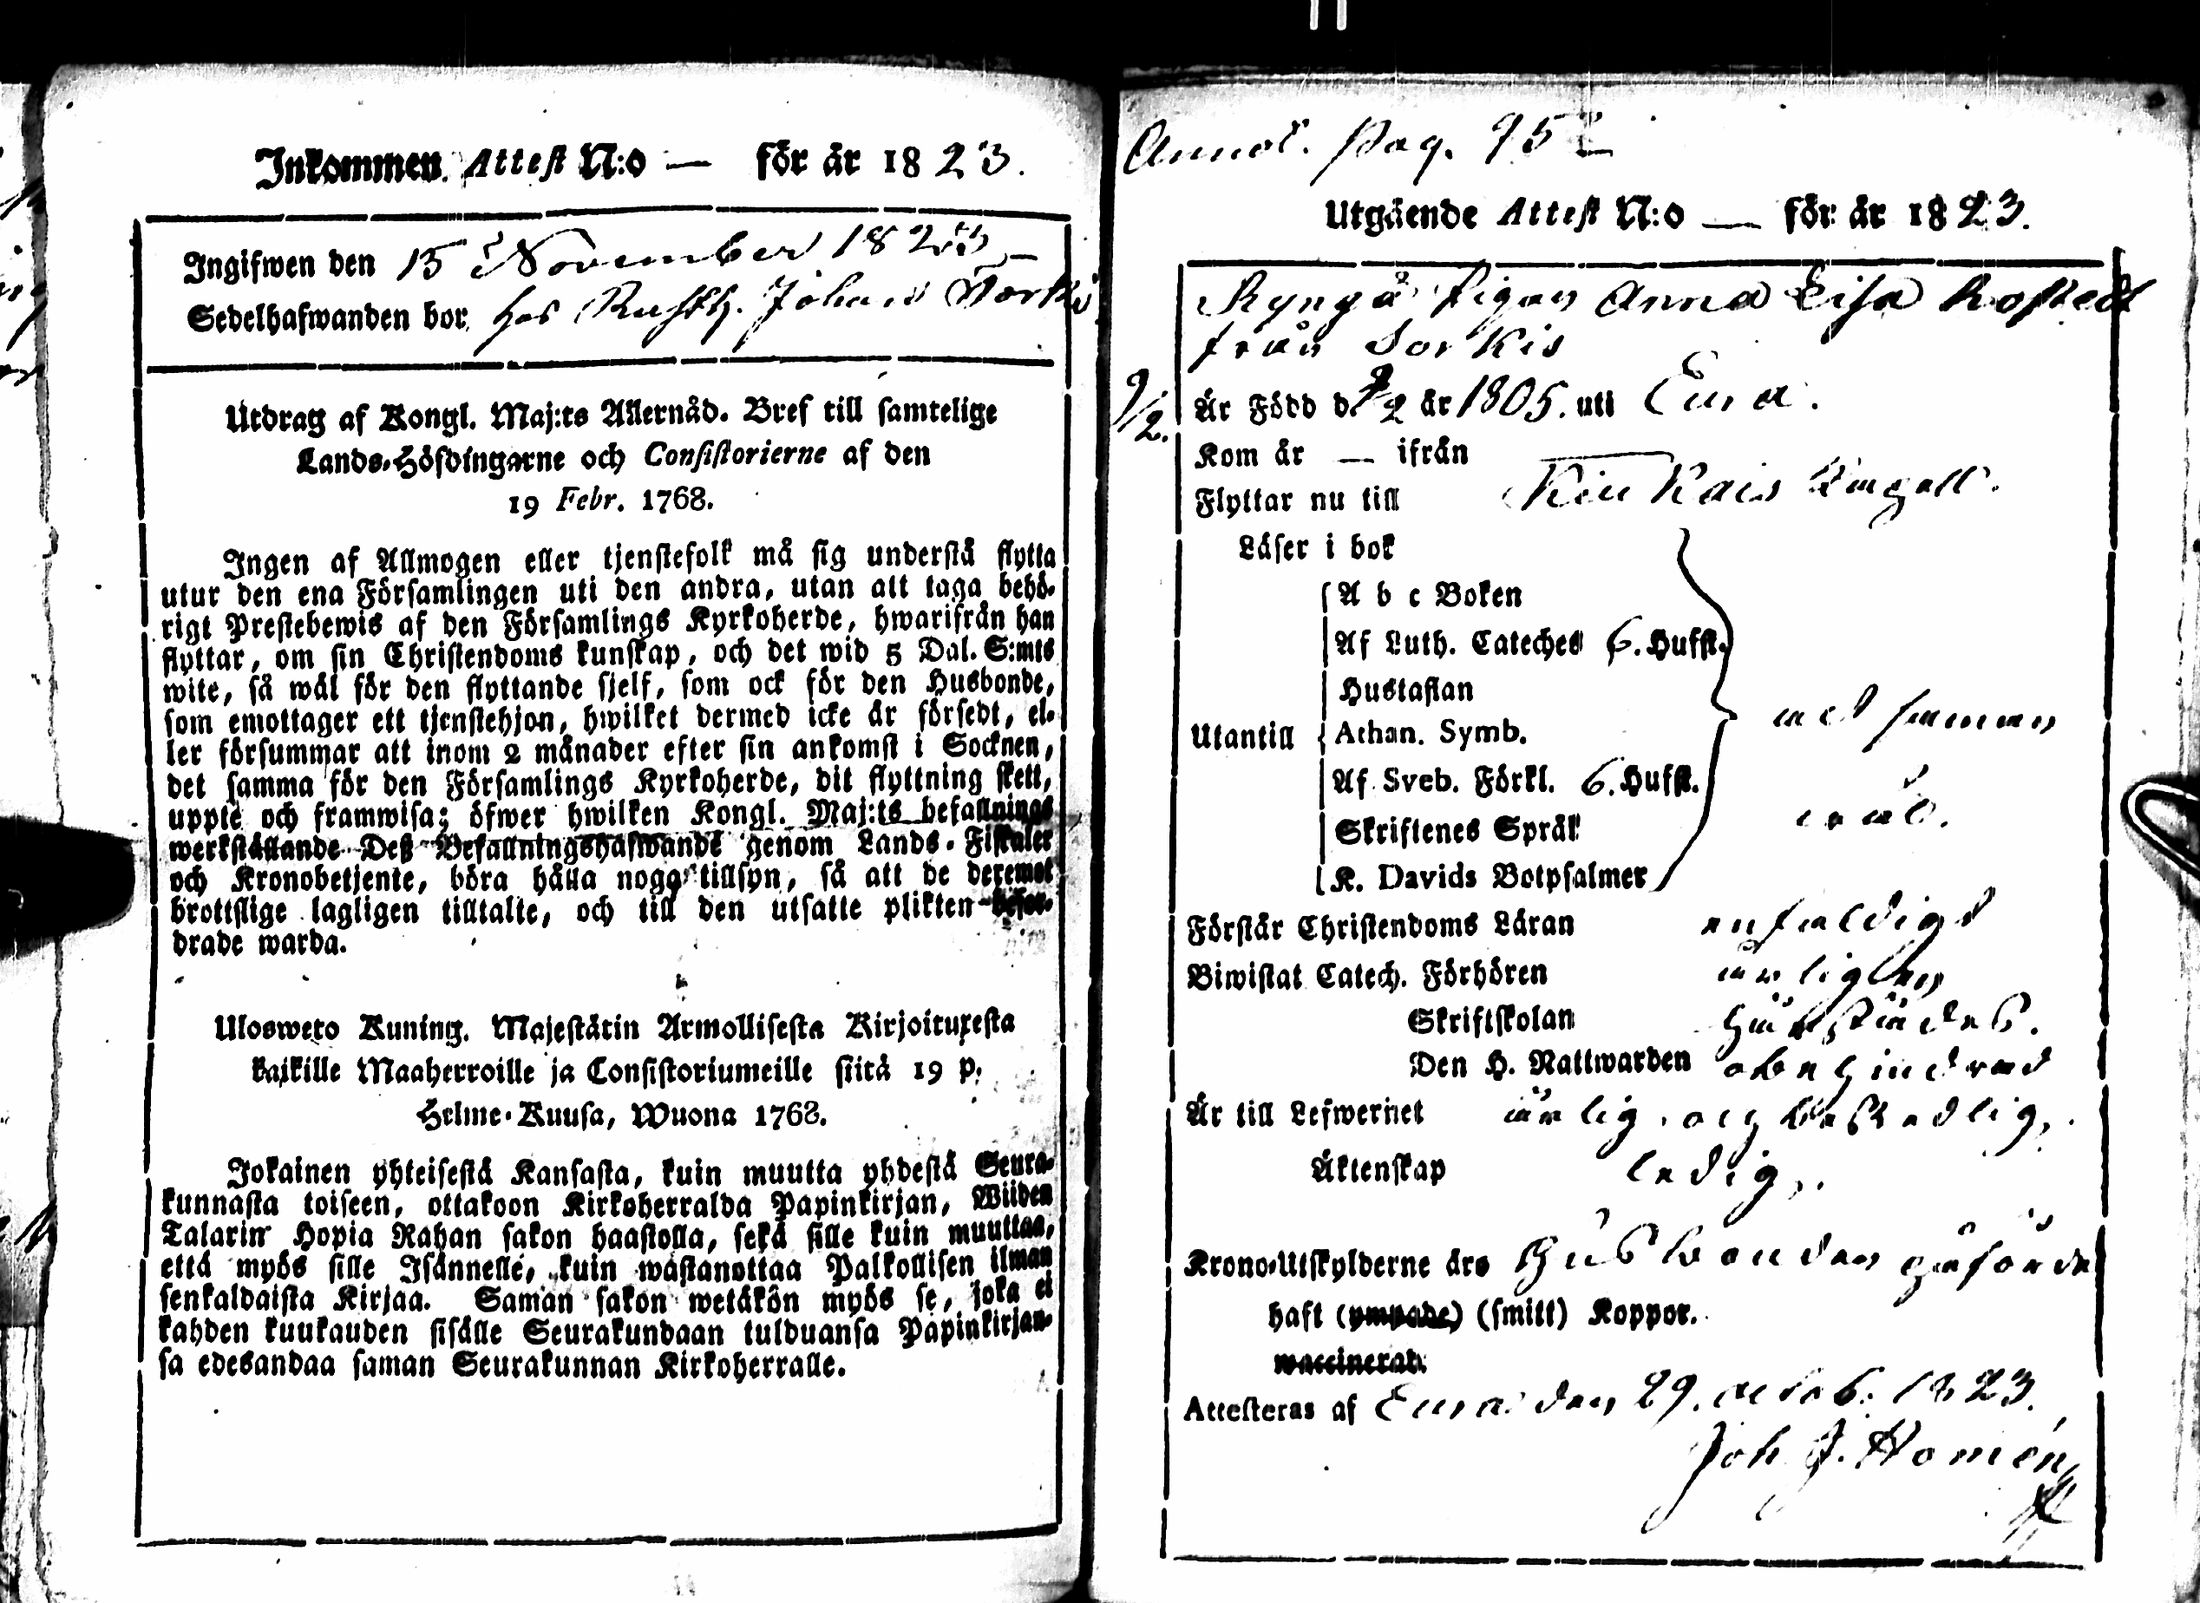 Inkommen Attest N:o — för år 1823.
Ingifwen den 15 November 1823
Sedelhafwanden bor hos Rusth. Johan
Utdrag af Kongl. Maj:ts Allernåd. Bref till samtelige
Lands-Höfdingarne och Consistorierne af den
19 Febr. 1768.
Ingen af Allmogen eller tjenstefolk må sig understå flytta
utur den ena Församlingen uti den andra, utan att taga behö-
rigt Prestebewis af den Församlings Kyrkoherde, hwarifrån han
flyttar, om sin Christendoms kunskap, och det wid 5 Dal. S:mts
wite, så wäl för den flyttande sjelf, som ock för den Husbonde,
som emottager ett tjenstehjon, hwilket dermed icke är försedt, el-
ler försummar att inom 2 månader efter sin ankomst i Socknen,
det samma för den Församlings Kyrkoherde, dit flyttning skett,
uppte och framwisa; öfwer hwilken Kongl. Maj:ts befallnings
werkställande Deß Befallningshafwande genom Lands-Fiskaler
och Kronobetjente, böra hålla noga tillsyn, så att de deremot
brottslige lagligen tilltalte, och till den utsatte plikten befor-
drade warda.
Ulosweto Kuning. Majestätin Armollisesta Kirjoituxesta
kaikille Maaherroille ja Consistoriumeille siitä 19 p.
Helme-Kuusa, Wuona 1768.
Jokainen yhteisestä Kansasta, kuin muutta yhdestä Seura-
kunnasta toiseen, ottakoon Kirkoherralda Papinkirjan, Wiiden
Talarin Hopia Rahan sakon haastolla, sekä sille kuin muuttaa,
että myös sille Isännelle, kuin wastanottaa Palkollisen ilman
senkaldaista Kirjaa. Saman sakon wetäkön myös se, joka ei
kahden kuukauden sisälle Seurakundaan tulduansa Papinkirjan-
sa edesandaa saman Seurakunnan Kirkoherralle.
Annot. pag. 95
Utgående Attest N:o — för år 1823.
Pigan Anna Lisa
från Sorkis
9/2. Är Född d 9/2 år 1805. uti Eura.
Kom år — ifrån
Flyttar nu till Kiukais
Läser i bok
A b c Boken
Af Luth. Cateches 6. Hufst.
Hustaflan
Utantill Athan. Symb.
Af Sveb. Förkl. 6. Hufst.
Skriftenes Språk
K. Davids Botpsalmer
Förstår Christendoms Läran enfaldigt
Biwistat Catech. Förhören årligen
Skriftskolan
Den H. Nattwarden obehindrad
Är till Lefwernet ärlig och beskedlig.
Äktenskap ledig.
Krono-Utskylderne äro Husbonden
haft (ympade) (smitt) Koppor.
waccinerad.
Attesteras af Eura den 29. octob. 1823.
Joh. J. Homén